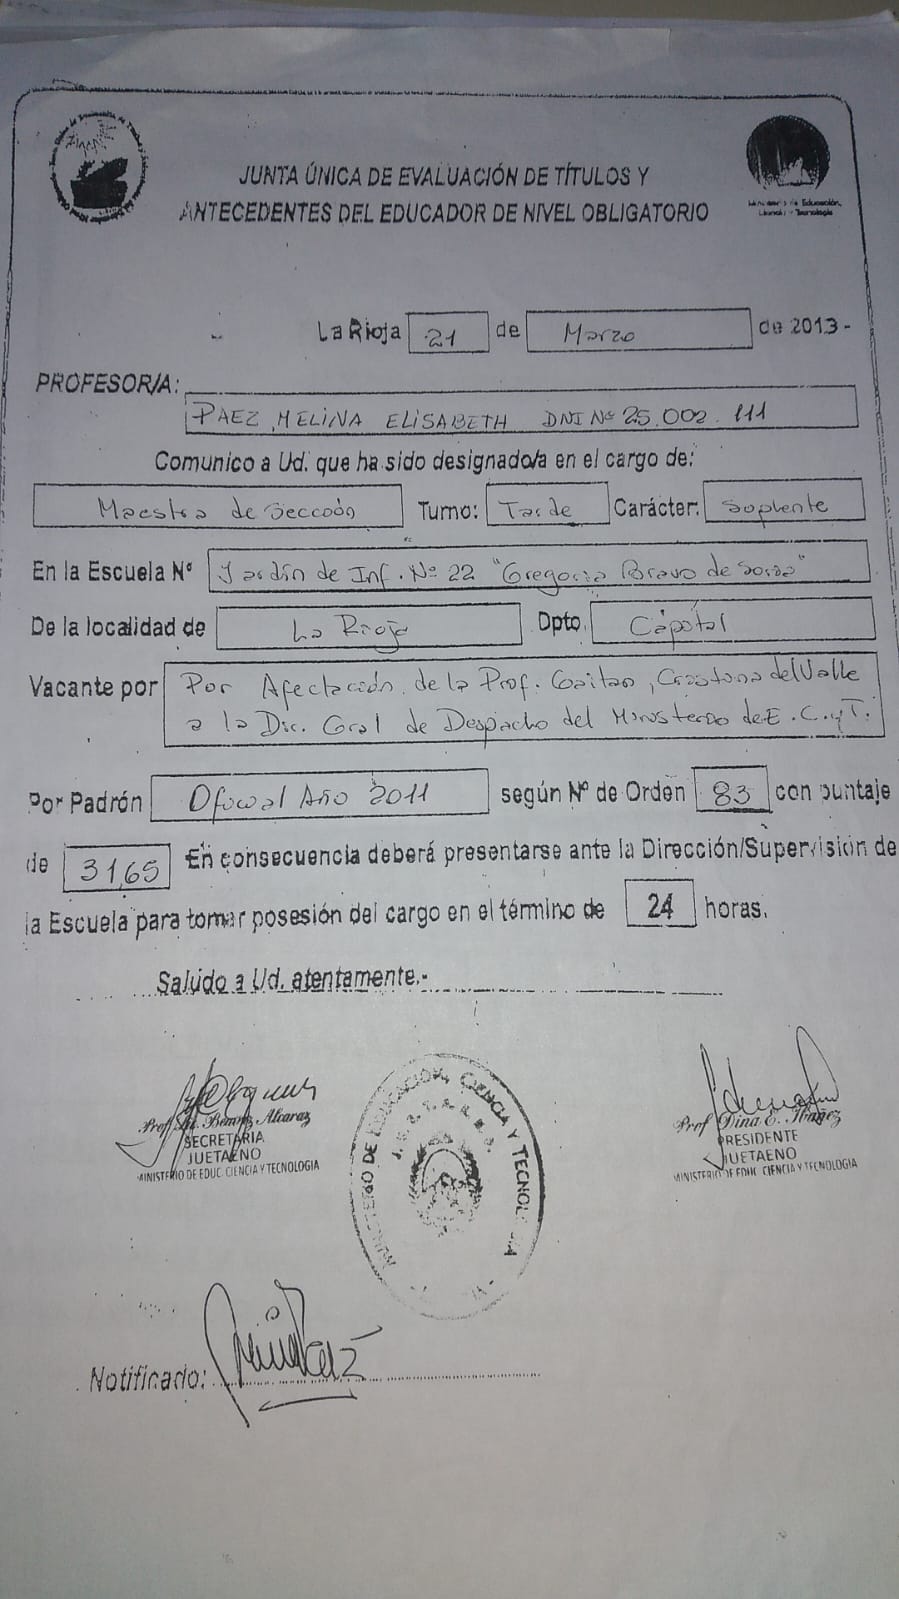 JUNTA ÚNICA DE EVALUACIÓN DE TÍTULOS Y
ANTECEDENTES DEL EDUCADOR DE NIVEL OBLIGATORIO
Ministerio de Educación,
Ciencia y Tecnología
La Rioja 21 de Marzo de 2013-
PROFESOR/A:
PAEZ, MELINA ELISABETH DNI Nº 25.002.111
Comunico a Ud. que ha sido designado/a en el cargo de:
Maestra de Sección Turno: Tarde Carácter: Suplente
En la Escuela Nº Jardín de Inf. Nº 22 "Gregoria Bravo de
De la localidad de La Rioja Dpto. Capital
Vacante por Por Afectación de la Prof. Gaitan, Cristina del Valle
a la Dir. Gral de Despacho del Ministerio de E. C. y T.
Por Padrón Oficial Año 2011 según Nº de Orden 83 con puntaje
de 31,65 En consecuencia deberá presentarse ante la Dirección/Supervisión de
la Escuela para tomar posesión del cargo en el término de 24 horas.
Saludo a Ud. atentamente.-
Prof. Alcaraz
SECRETARIA
JUETAENO
MINISTERIO DE EDUC. CIENCIA Y TECNOLOGIA
MINISTERIO DE EDUCACIÓN, CIENCIA Y TECNOLOGIA
Prof Dina E. Ibañez
PRESIDENTE
JUETAENO
MINISTERIO DE EDUC. CIENCIA Y TECNOLOGIA
Notificado: